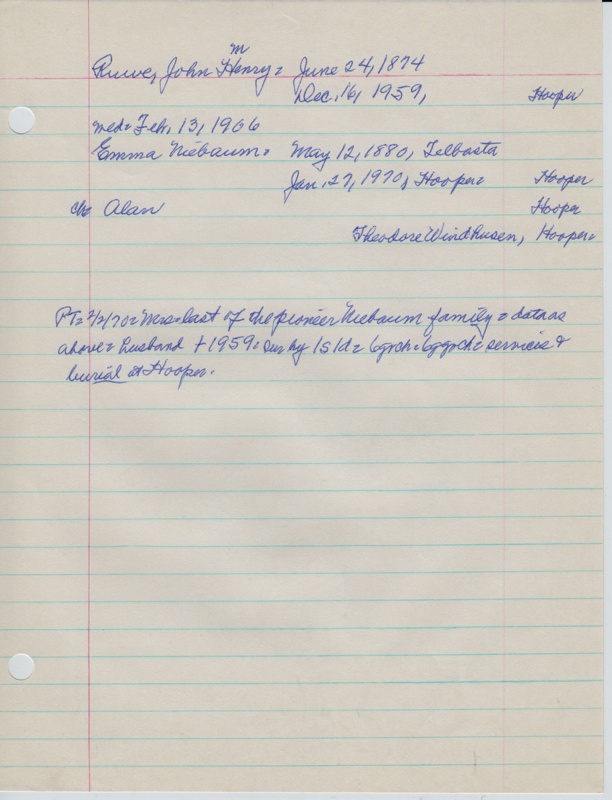 m
Ruwe, John Henry = June 24, 1874
Dec. 16, 1959, Hooper
med = Feb. 13, 1906
Emma Niebaum = May 12, 1880, Telbasta
Jan. 27, 1970, Hooper = Hooper
ch = Alan Hooper
Theodore Windhusen, Hooper =
PT = 2/2/70 = Mrs = last of the pioneer Niebaum family = data as
above = husband + 1959 = sur by 1s 1d = 6grch = 6ggrch = services &
burial at Hooper.